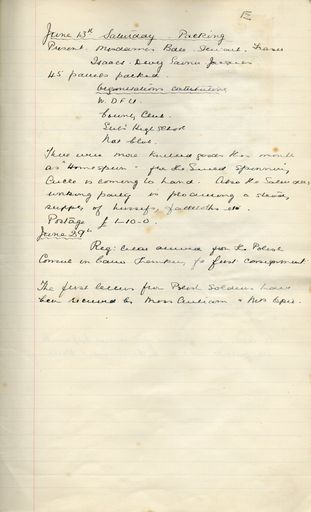 June 13th Saturday - Packing
Present. Mesdames Dewar. Fraser
Isaacs. Davy Jacques
45 parcels packed
Organisations contributing
W. D. F. U.
Country Club.
Girls High School
Nat Club.
There were more knitted goods this month
as "Homespun" for the Spinning
Circle is coming to hand. Also the Saturday
working party is producing a steady
supply of hussifs, facecloths etc.
Postage £1-10-0.
June 29th
Reg: letter arrived from the Polish
Consul in Cairo thanking for first consignment.
The first letters from Polish Soldiers have
been received by Miss & Mrs